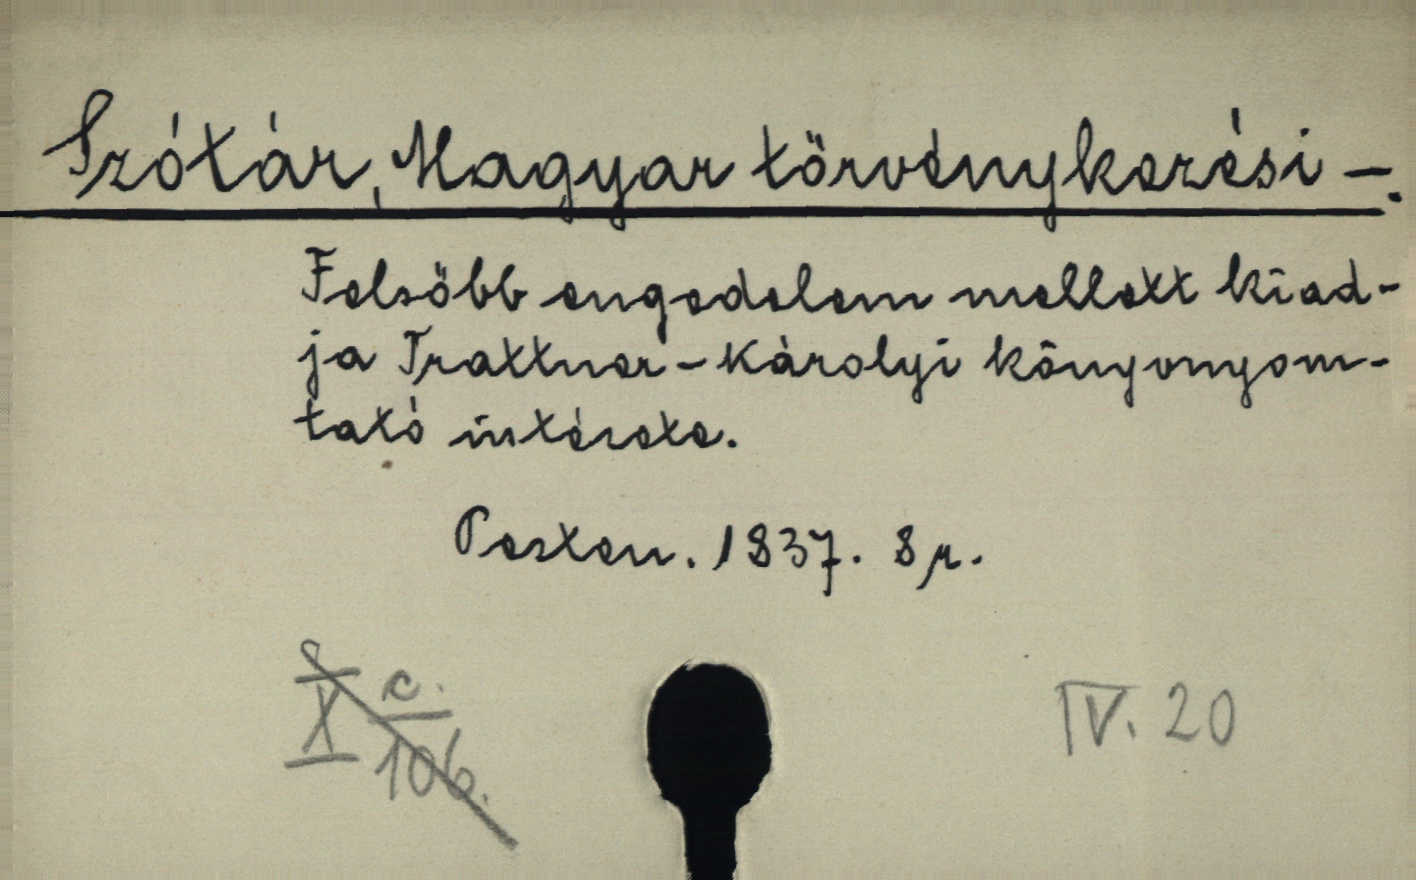 Szótár, Magyar törvénykezési -.
Felsőbb engedelem mellett kiad-
ja Trattner-Károlyi könyvnyom-
tató intézete.
Pesten. 1837. 8 r.
X c.
106.
IV. 20